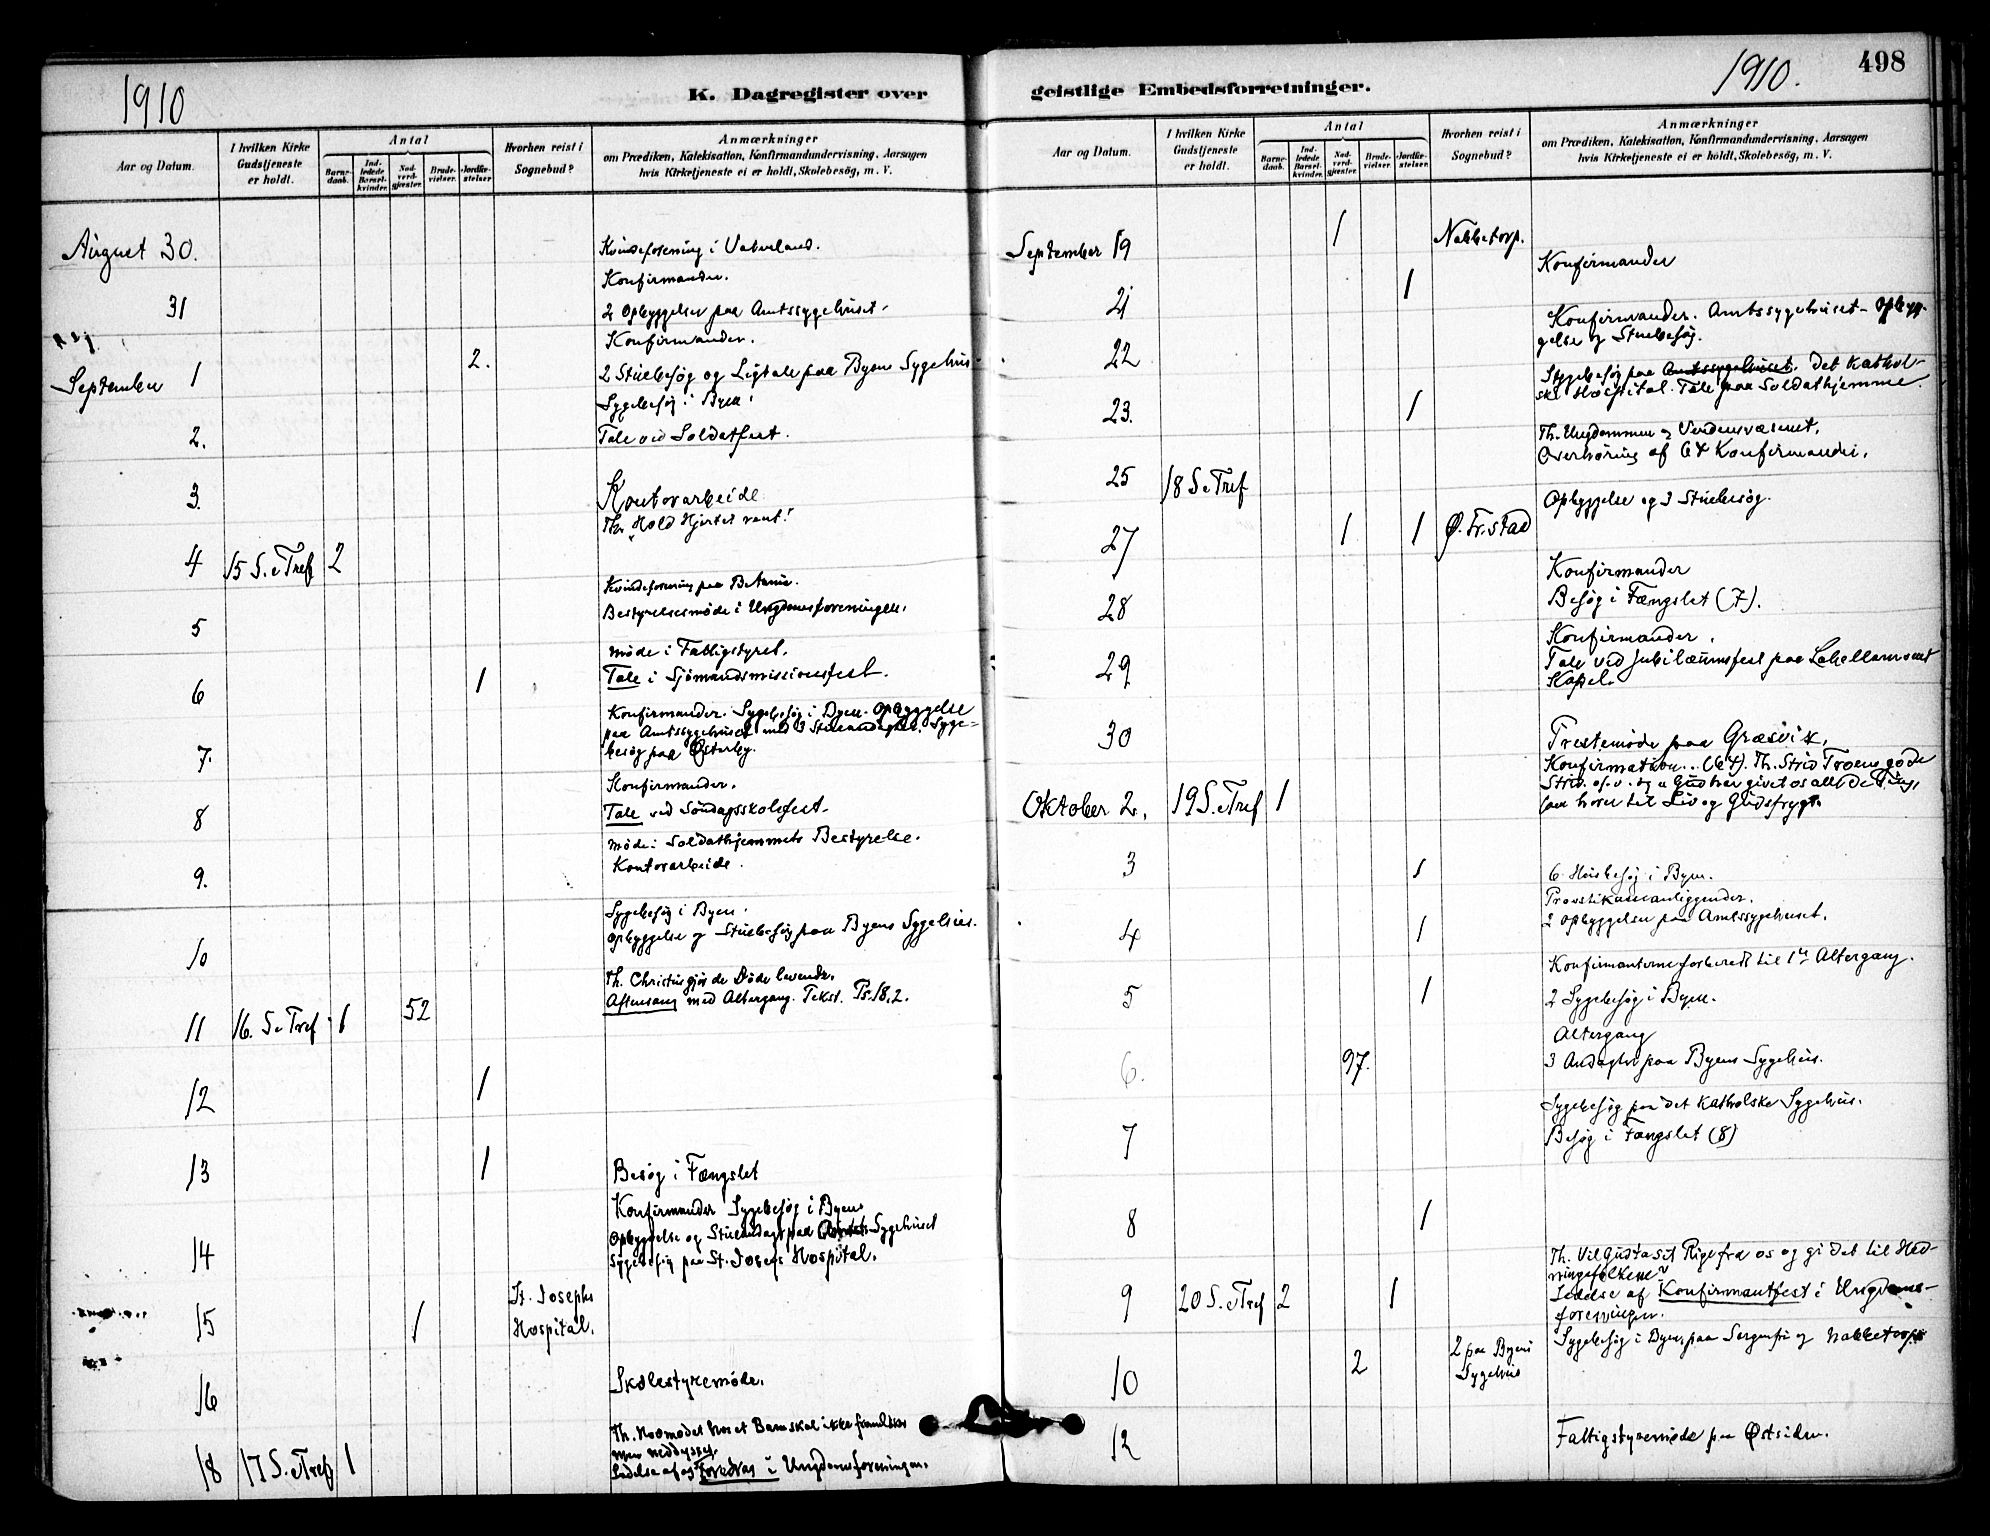 1910
K. Dagregister over
Aar og Datum.
I hvilken Kirke Gudstjeneste er holdt.
Antal
Barnedaab.
Indledede Barselkvinder.
Nadverdgjester.
Brudevielser.
Jordfæstelser.
Hvorhen reist i Sognebud?
Anmærkninger
om Prædiken, Katekisation, Konfirmandundervisning, Aarsagen
hvis Kirketjeneste ei er holdt, Skolebesög, m. V.
August 30.
Kvindeforening i
Konfirmander.
31
2 Opbyggelser paa Amtssygehuset.
Konfirmander.
September 1
2.
2 Stuebesøg og Ligtale paa Byens Sygehus
Sygebesøg i Byen.
2.
Tale ved Soldatfest.
3.
Kontorarbeide
Th. Hold Hjertet rent!
4 15 S. e Tref 2
Kvindeforening paa Betania.
Bestyrelsesmøde i Ungdomsforeningen.
5
Møde i Fattigstyret.
Tale i Sjømandsmissionsfest.
6 1
Konfirmander. Sygebesøg i Byen. Opbyggelse
paa Amtssygehuset med 3 Stueandagter. Syge-
besøg paa Østerby.
7.
Konfirmander.
Tale ved Søndagsskolefest.
8
Møde i Soldathjemmets Bestyrelse.
Kontorarbeide.
9.
Sygebesøg i Byen.
Opbyggelse og Stuebesøg paa Byens Sygehus.
10
Th. Christus gjør de Døde levende.
Aftensang med Altergang. Tekst. Ps. 18,2.
11 16. S. e Tref 1 52
12 1
13 1 Besøg i Fængslet
Konfirmander Sygebesøg i Byen
Opbyggelse og Stueandagt paa Sygehuset
Sygebesøg paa St. Josefs Hospital.
14
15 1 St. Josephs
Hospital.
16 Skolestyremøde.
Th. Hovmodet hos et Barn skal ikke
men neddysses.
18 17 S. e Tref 1
Ledelse af og Foredrag i Ungdomsforeningen.
1910.
498
geistlige Embedsforretninger.
Aar og Datum.
I hvilken Kirke Gudstjeneste er holdt.
Antal
Barnedaab.
Indledede Barselkvinder.
Nadverdgjester.
Brudevielser.
Jordfæstelser.
Hvorhen reist i Sognebud?
Anmærkninger
om Prædiken, Katekisation, Konfirmandundervisning, Aarsagen
hvis Kirketjeneste ei er holdt, Skolebesög, m. V.
September 19 1 Nabbetorp.
Konfirmander
21 1
Konfirmander. Amtssygehuset - Opbyg-
gelse og Stuebesøg.
22
Sygebesøg paa Amtssygehuset. Det kathol-
ske Hospital. Tale paa Soldathjemme
23. 1
Th. Ungdommen og Verdensvæsenet.
Overhøring af 64 Konfirmander.
25 18 S. e Tref
Opbyggelse og 3 Stuebesøg.
27 1 1 Ø. Fr.stad
Konfirmander
Besøg i Fængslet (7).
28
Konfirmander.
29
Tale ved Jubilæumsfest paa
Kapel.
30
Prestemøde paa Græsvik.
Konfirmation.. (64). Th. Strid Troens gode
Strid. o.s.v. og Gud har givet os alle de Ting,
som hører til Liv og Gudsfrygt.
Oktober 2. 19 S. e Tref 1
3 1
6 Husbesøg i Byen.
2 Opbyggelser paa Amtssygehuset.
4 1
Konfirmanterne forberedt til 1ste Altergang.
5 1
2 Sygebesøg i Byen.
Altergang
6. 97.
3 Andagter paa Byens Sygehus.
Sygebesøg paa det katholske Sygehus.
7
Besøg i Fængslet (8)
8 1
Th. Vil Gud ta sit Rige fra os og gi det til Hed-
ningefolkene?
9 20 S. e Tref 2 1
Ledelse af Konfirmantfest i Ungdoms-
foreningen.
Sygebesøg i Byen, paa Sorgenfri og Nabbetorp
10 2 2 paa Byens
Sygehus
12
Fattigstyremøde paa Østsiden.